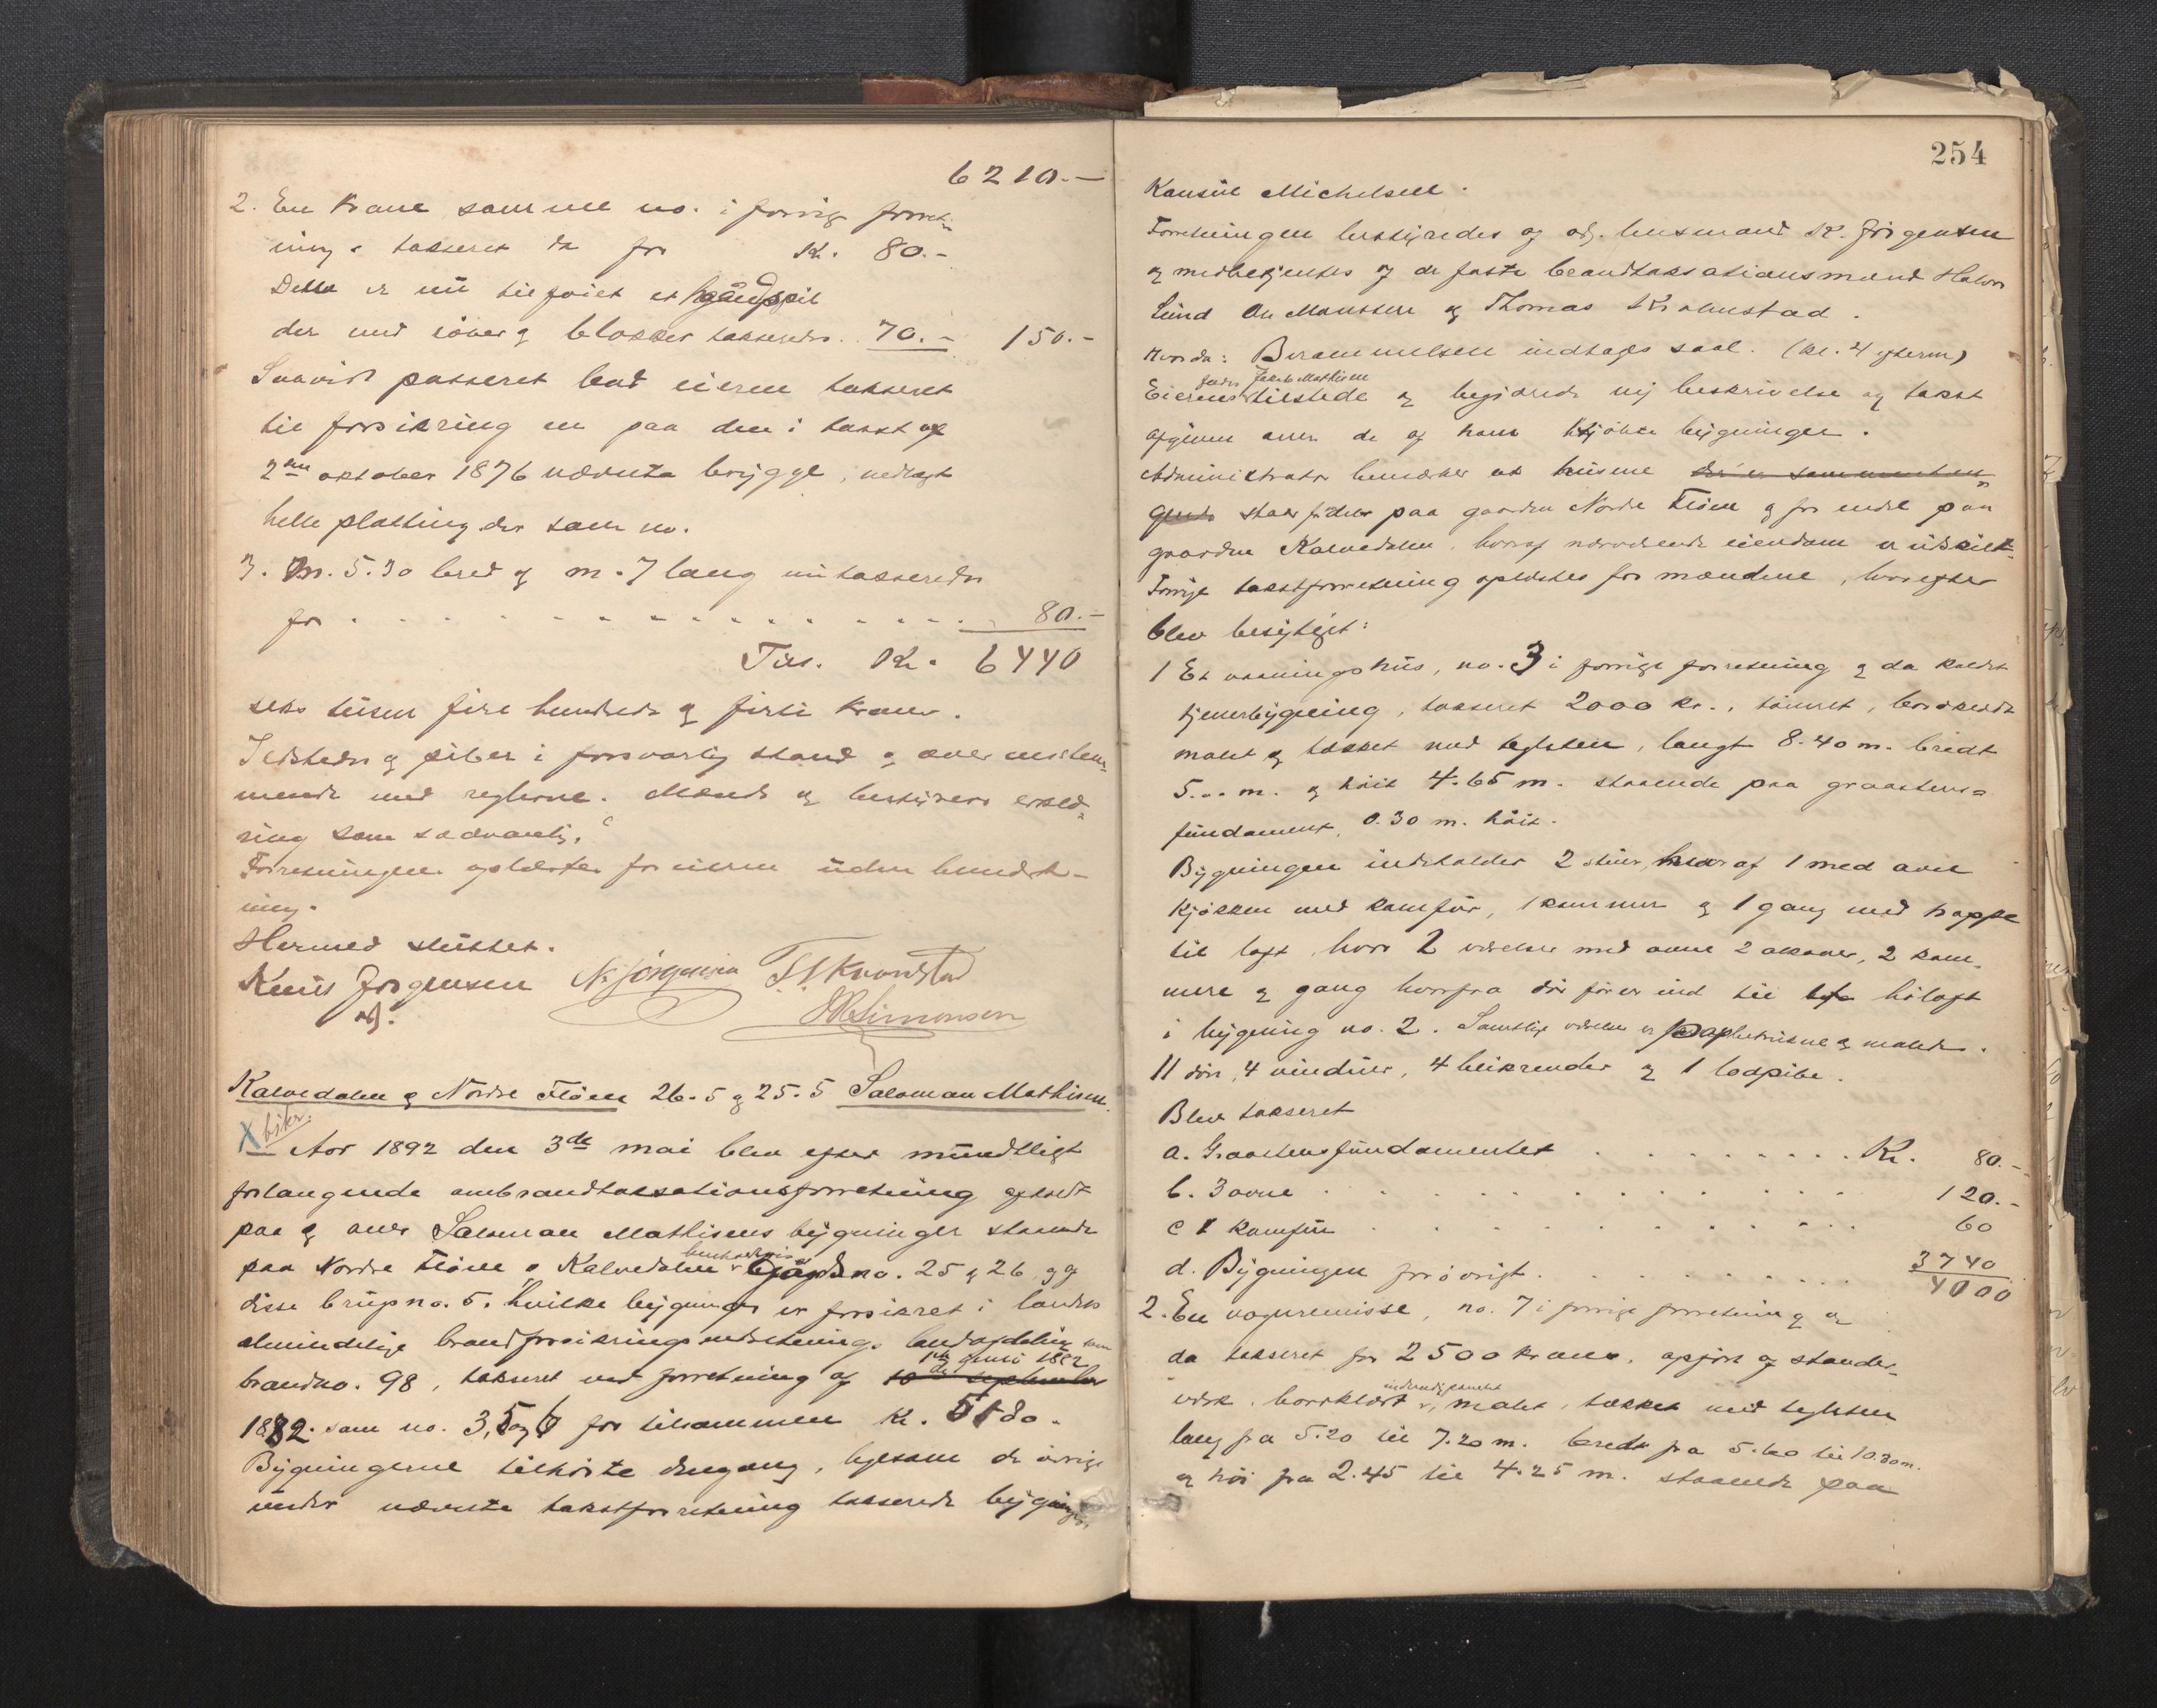 6210.—
2. En krane som me no. i forrige forret-
ning - takseret da for Kr. 80.-
Dette er nu tilføiet et haandspil
der med tover og blokker takseredes. 70.- 150.-
Saavidt passeret bad eieren takseret
til forsikring en paa den i takst af
2den oktober 1876 nævnte brygge, nedlagt
helle platting der som no.
3. M. 5.30 bred og m. 7 lang nu takseredes
for . . . . . . . . . 80.-
Tils. Kr. 6440
seks tusen fire hundrede og firti kroner.
Ildsteder og piber i forsvarlig stand og overenstem-
mende med reglerne. Mænds og bestyrers erklæ-
ring som sædvanlig.
Forretningen oplæstes for eieren uden bemærk-
ning.
Hermed sluttet.
Knut Jørgensen N. Jørgensen T. T. Kronstad
af. Simonsen
Kalvedalen og Nordre Fløen 26.5 og 25.5 Saloman Mathisen.
X bskr.
Aar 1892 den 3de mai blev efter mundtligt
forlangende ombrandtaksationsforretning afholdt
paa og over Saloman Mathisens bygninger staaende
paa Nordre Fløen og Kalvedalen henholdsvis gaards no. 25 og 26 og af
disse brugsno. 5. hvilke bygninger er forsikret i landets
almindelige brandforsikringsindretnings landafdeling under
brandno. 98, takseret ved forretning af 10de september 1ste juni 1882
1882. som no. 3, 5 og 6 for tilsammen Kr. 5580.
Bygningerne tilhørte dengang, ligesom de øvrige
under nævnte takstforretning takserede bygninger,
254
Konsul Michelsen.
Forretningen bestyredes af adj. lensmand K. Jørgensen
og medbetjentes af de faste brandtaksationsmænd Halvor
Lund Ole Monssen og Thomas Kronstad.
Hvorda: Berammelsen indtages saal. (kl. 4 efterm)
Eierens fader Jakob Mathisen tilstede og begjærede ny beskrivelse og takst
afgiven over de af ham kjøbte bygninger.
Administrator bemærker at husene der er sammenhæn-
gende staar fordelt paa gaarden Nordre Fløen og for endel paa
gaarden Kalvedalen, hvoraf nærværende eiendom er udskilt.
Forrige takstforretning oplæstes for mændene, hvorefter
blev besigtiget:
1 Et vaaningshus, no. 3 i forrige forretning og da kaldet
tjenerbygning, takseret 2000 kr., tømret, bordklædt
malet og tækket med teglsten, langt 8.40 m. bredt
5... m. og høit 4.65 m. staaende paa graastens-
fundament, 0.30 m. høit.
Bygningen indeholder 2 stuer, hvoraf 1 med ovn
kjøkken med komfur, 1 kammer og 1 gang med trappe
til loft, hvor 2 værelser med ovne 2 alkover, 2 kam-
mere og gang hvorfra dør fører ind til høloft
i bygning no. 2. Samtlige værelser er panelede og malede.
11 dør, 4 vinduer, 4 blikrender og 1 lodpibe.
Blev takseret
a. Graastensfundamentet . . . . . . . . Kr. 80.-
b. 3 ovne . . . . . . . . . 120.-
c 1 komfur . . . . . . . . 60
d. Bygningen forøvrigt . . . . . . . 3740
4000
2. En vognremisse, no. 7 i forrige forretning og
da takseret for 2500 kroner, opført af stander-
værk, bordklædt indvendig panelet, malet, tækket med teglsten
lang fra 5.20 til 7.20 m. bredt fra 5.60 til 10.30 m.
og høi fra 2.45 til 4.25 m. staaende paa